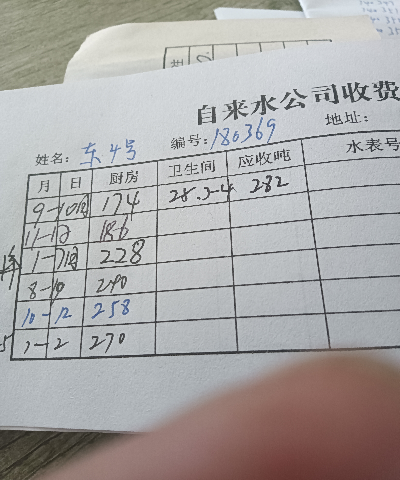 自来水公司收费
姓名: 东4号 编号: 180369 地址:
月 日 厨房 卫生间 应收吨 水表号
9-10月 174 28.3-4 282
11-12 186
1-7月 228
8-10 240
10-12 258
1-2 270